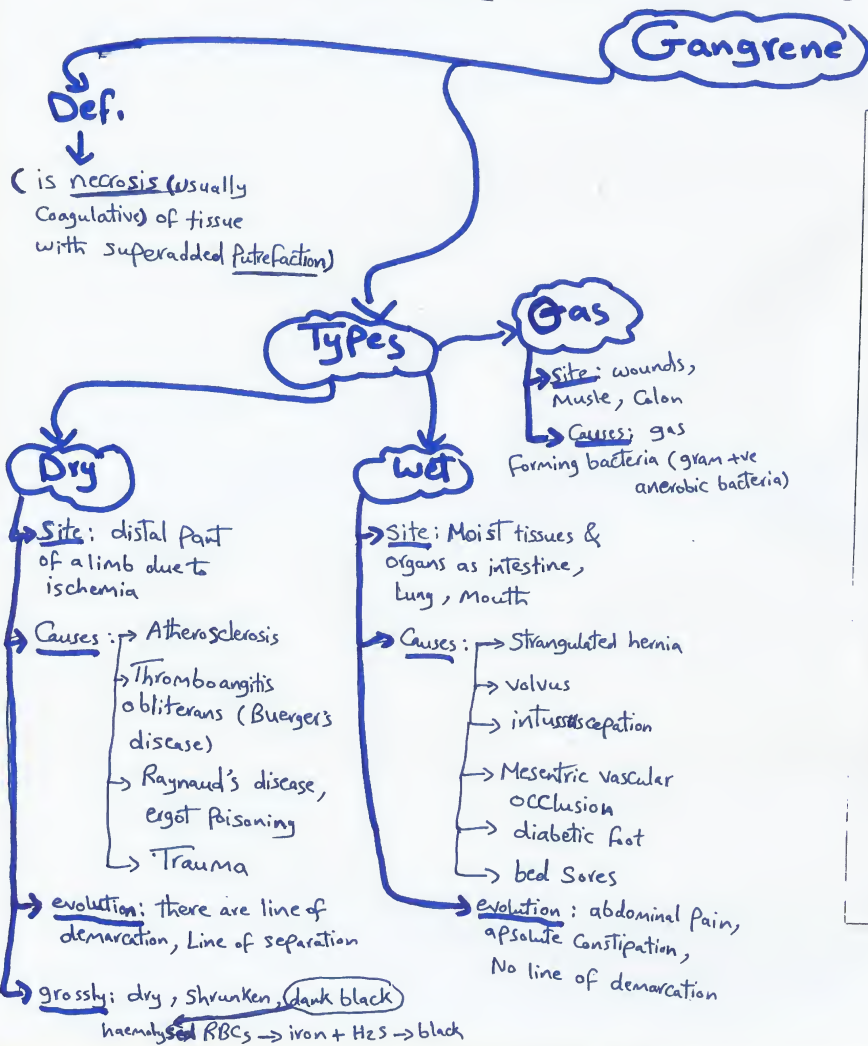 Gangrene
Def.
( is necrosis (usually
Coagulative) of tissue
with superadded Putrefaction)
Types
Gas
Site: wounds,
Musle, Colon
Causes: gas
forming bacteria (gram +ve
anerobic bacteria)
Dry
Site: distal Part
of a limb due to
ischemia
Causes:
Atherosclerosis
Thromboangitis
obliterans (Buerger's
disease)
Raynaud's disease,
ergot Poisoning
Trauma
evolution: there are line of
demarcation, Line of separation
grossly: dry, Shrunken, dark black
haemolysed RBCs → iron + H2S → black
Wet
Site: Moist tissues &
organs as intestine,
Lung, Mouth
Causes:
Strangulated hernia
volvus
intussscepation
Mesentric vascular
occlusion
diabetic foot
bed Sores
evolution: abdominal Pain,
apsolute Constipation,
No line of demarcation